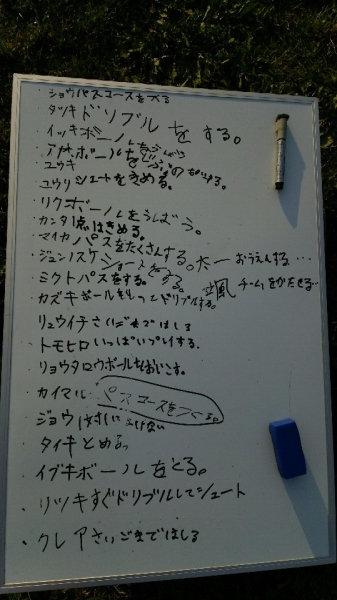 ・ショウパスコースを入る
・タツキドリブルをする。
・イッキボールをうばう
・アサヒボールを
・ユウキ
・ユウリシュートをきめる。
・リクボールをうばう。
・カンタ1点はきめる。
・マイカパスをたくさんする。
・ジュンノスケシュートをする。太一おうえんする…
・ミクトパスをする。颯チームをかたせる
・カズキボールをもってドリブルする。
・リュウイチさいごまではしる
・トモヒロいっぱいプレイする。
・リョウタロウボールをおいこす。
・カイマルパスコースをつくる。
・ジョウ絶対にまけない
・タイキとめる。
・イブキボールをとる。
・リツキすぐドリブルしてシュート
・クレアさいごまではしる